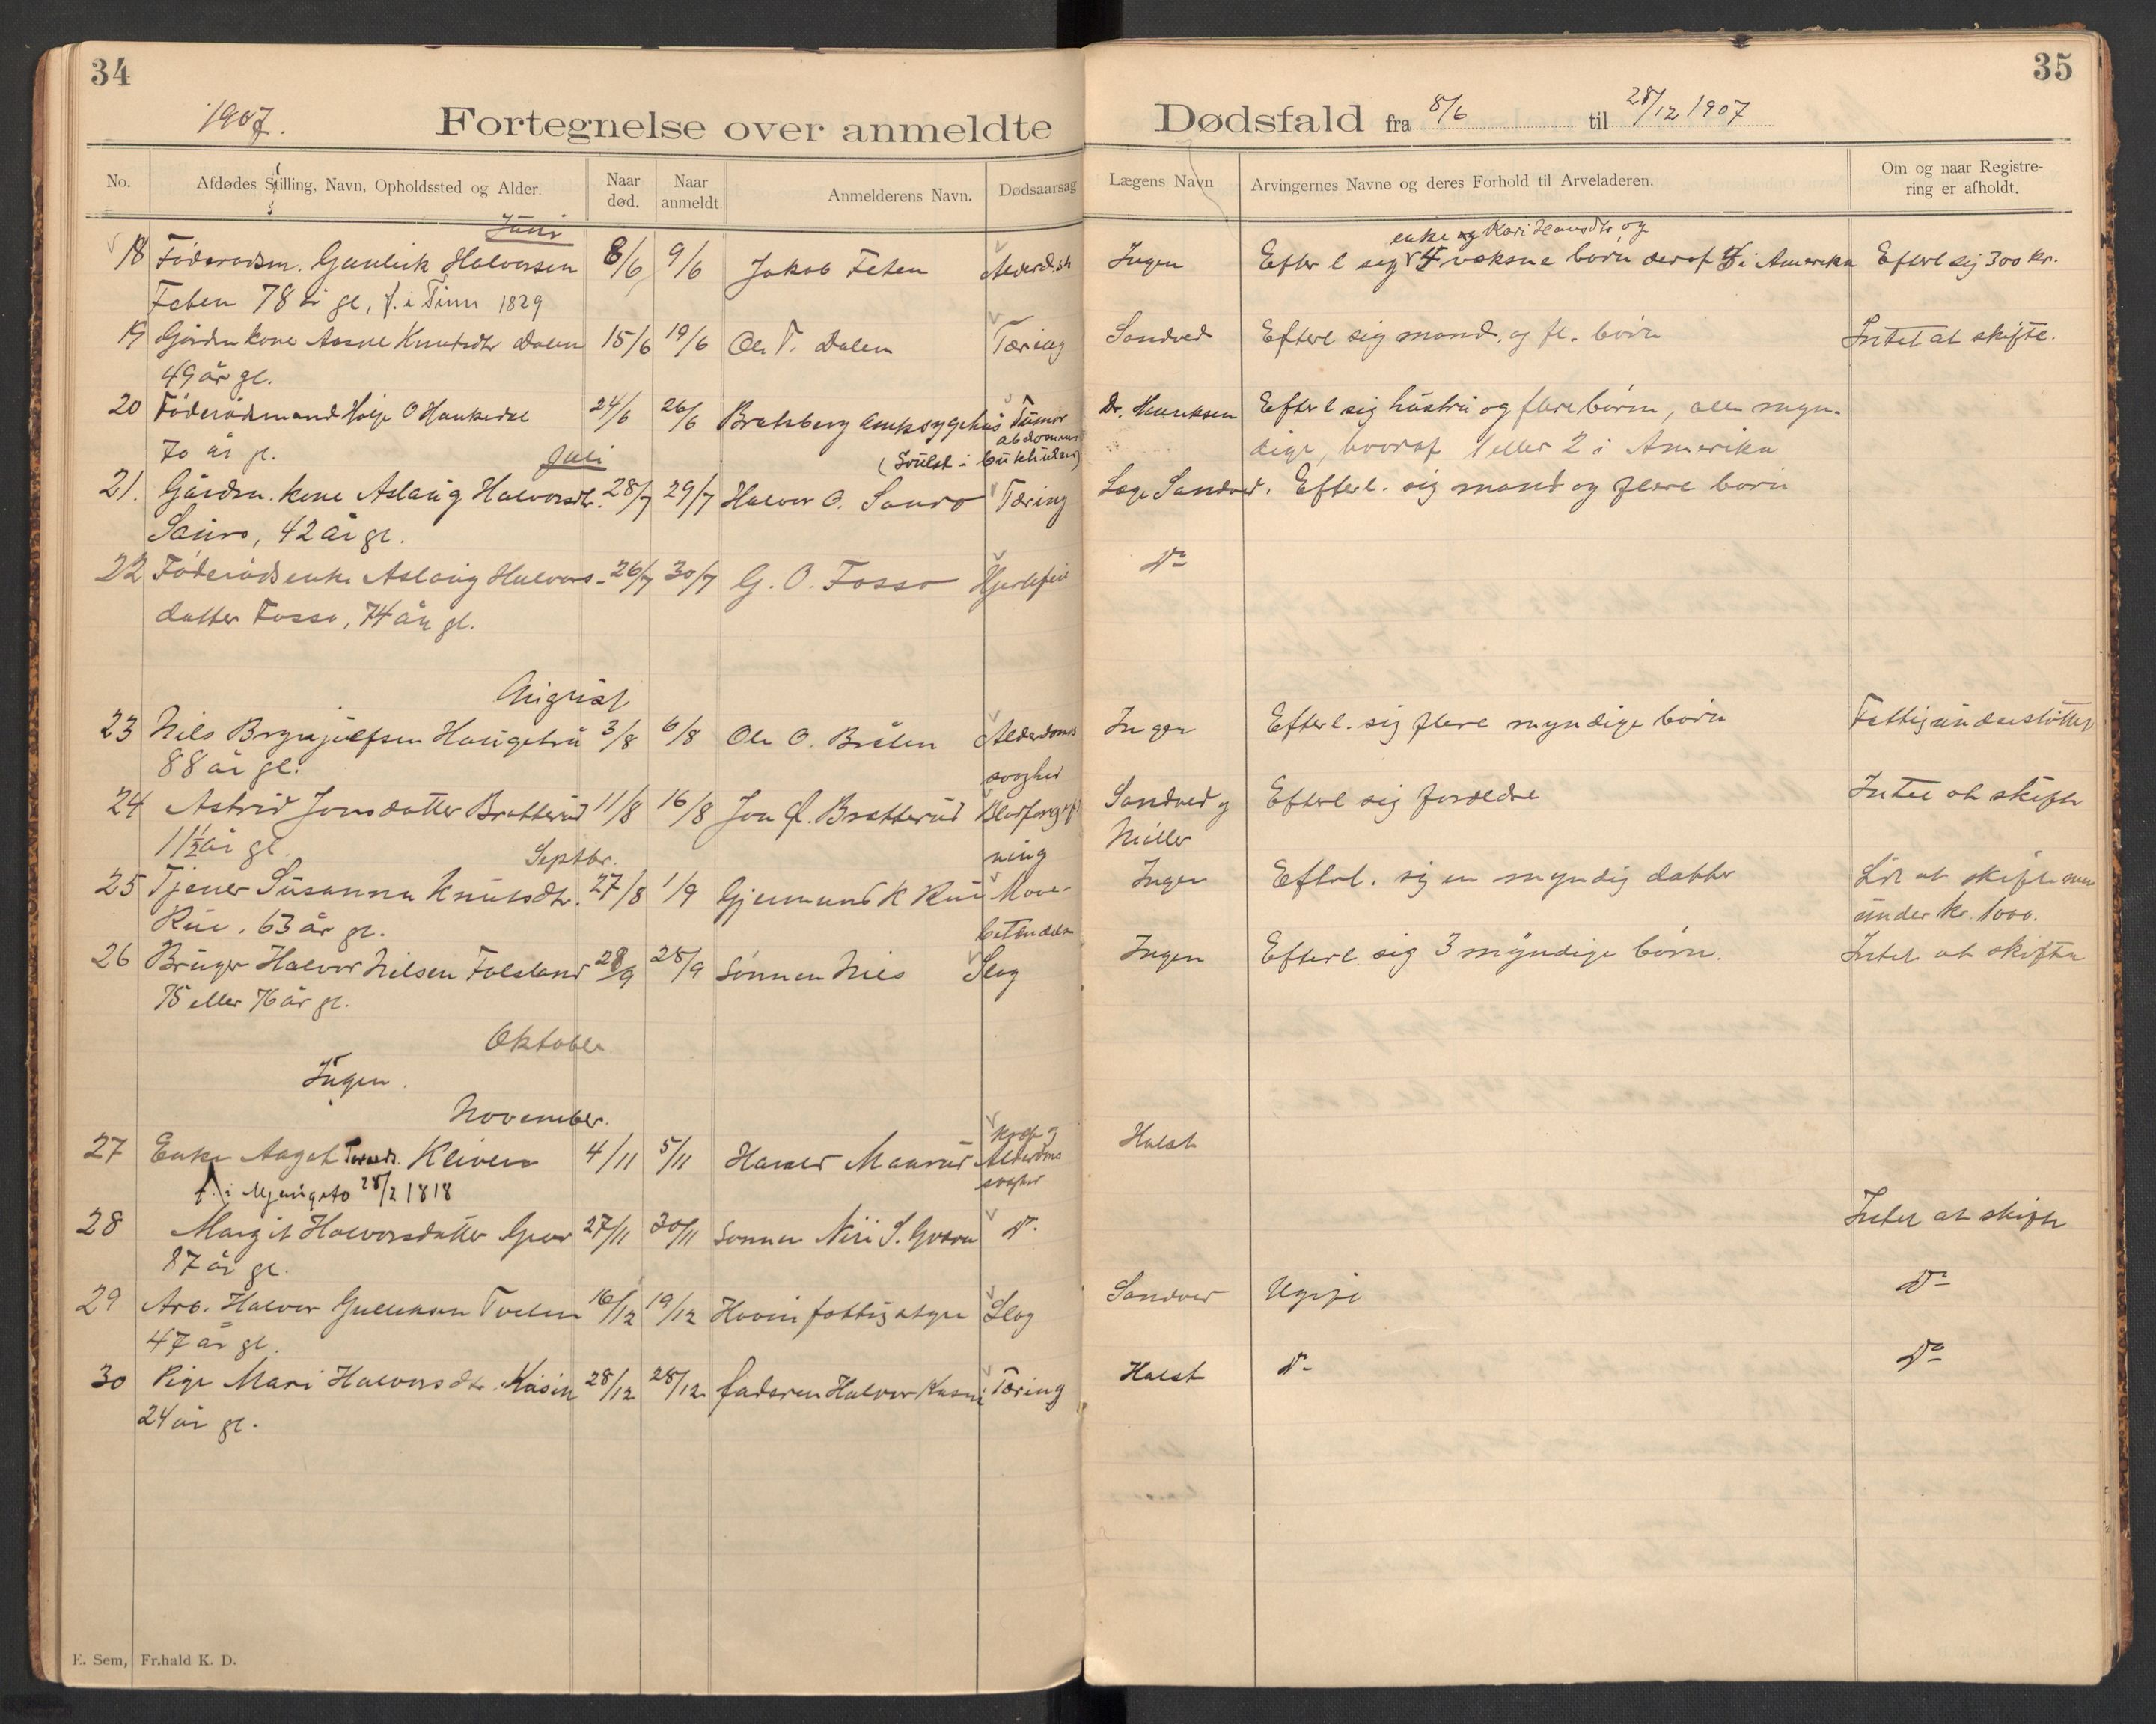 34
1907.
Fortegnelse over anmeldte
No.
Afdødes Stilling, Navn, Opholdssted og Alder.
Naar død.
Naar anmeldt
Anmelderens Navn.
Dødsaarsag
Juni
18 Föderaadsm. Gunleik Halvorsen 8/6 9/6 Jakob Feten Alderd.sh
Feten 78 år gl, f. i Tinn 1829
19 Gårdm kone Aasne Knutsdtr Dalen 15/6 19/6 Ole T. Dalen Tæring
49 år gl.
20 Föderådsmand Holje O Haukedal 24/6 26/6 Bratsberg amtssygehus Tumor
abdomens
70 år gl. (Svulst i bukhulen)
Juli
21. Gårdm. kone Aslaug Halvorsdtr. 28/7 29/7 Halvor O. Sauro Tæring
Sauro, 42 år gl.
22 Föderådsenke Aslaug Halvors- 26/7 30/7 G. O. Fosso Hjertefeil
datter Fosso, 74 år gl.
August
23 Nils Brynjulfsen Haugetrå 3/8 6/8 Ole O. Brålen Alderdoms
88 år gl. svaghed
24 Astrid Jonsdatter Bratterud 11/8 16/8 Jon Bratterud Blodforgift
11 1/2 år gl. ning
Septbr.
25 Tjener Susanna Knutsdtr. 27/8 1/9 Gjermund K Rui Mave-
Rui. 63 år gl. betendelse
26 Bruger Halvor Nilsen Folsland 28/9 28/9 Sønnen Nils Slag
75 eller 76 år gl.
Oktober
Ingen.
November.
27 Enke Aagot Kleiven 4/11 5/11 Harald Alderdoms
svaghed
f. i 28/2 1818
28 Margit Halvorsdatter 27/11 30/11 Sønnen S. Gvaru Do
87 år gl.
29 Arb. Halvor Gulleksen 16/12 19/12 Hovin fattigstyre Slag
47 år gl.
30 Pige Mari Halvorsdtr. Kåsin 28/12 28/12 faderen Halvor Kasin Tæring
24 år gl.
E. Sem, Fr.hald K. D.
35
Dødsfald fra 8/6 til 28/12 1907
Lægens Navn
Arvingernes Navne og deres Forhold til Arveladeren.
Om og naar Registrering er afholdt.
enke og Kari Hansdtr og
Ingen Efterl sig 4 voksne börn deraf i Amerika Efterl sig 300 kr.
Sandved Efterl sig mand og fl. börn Intet at skifte.
Dr. Henriksen Efterl sig hustru og flere börn, alle myn-
dige, hvoraf 1 eller 2 i Amerika
Læge Sandved. Efterl. sig mand og flere börn
Do
Ingen Efterl. sig flere myndige börn Fattigunderstöttet
Sandved og Efterl sig forældre Intet at skifte
Müller
Ingen Efterl. sig en myndig datter Lidt at skifte men
under kr. 1000.
Ingen Efterl. sig 3 myndige börn. Intet at skifte
Holst
Intet at skifte
Sandved Ugift Do
Holst Do Do